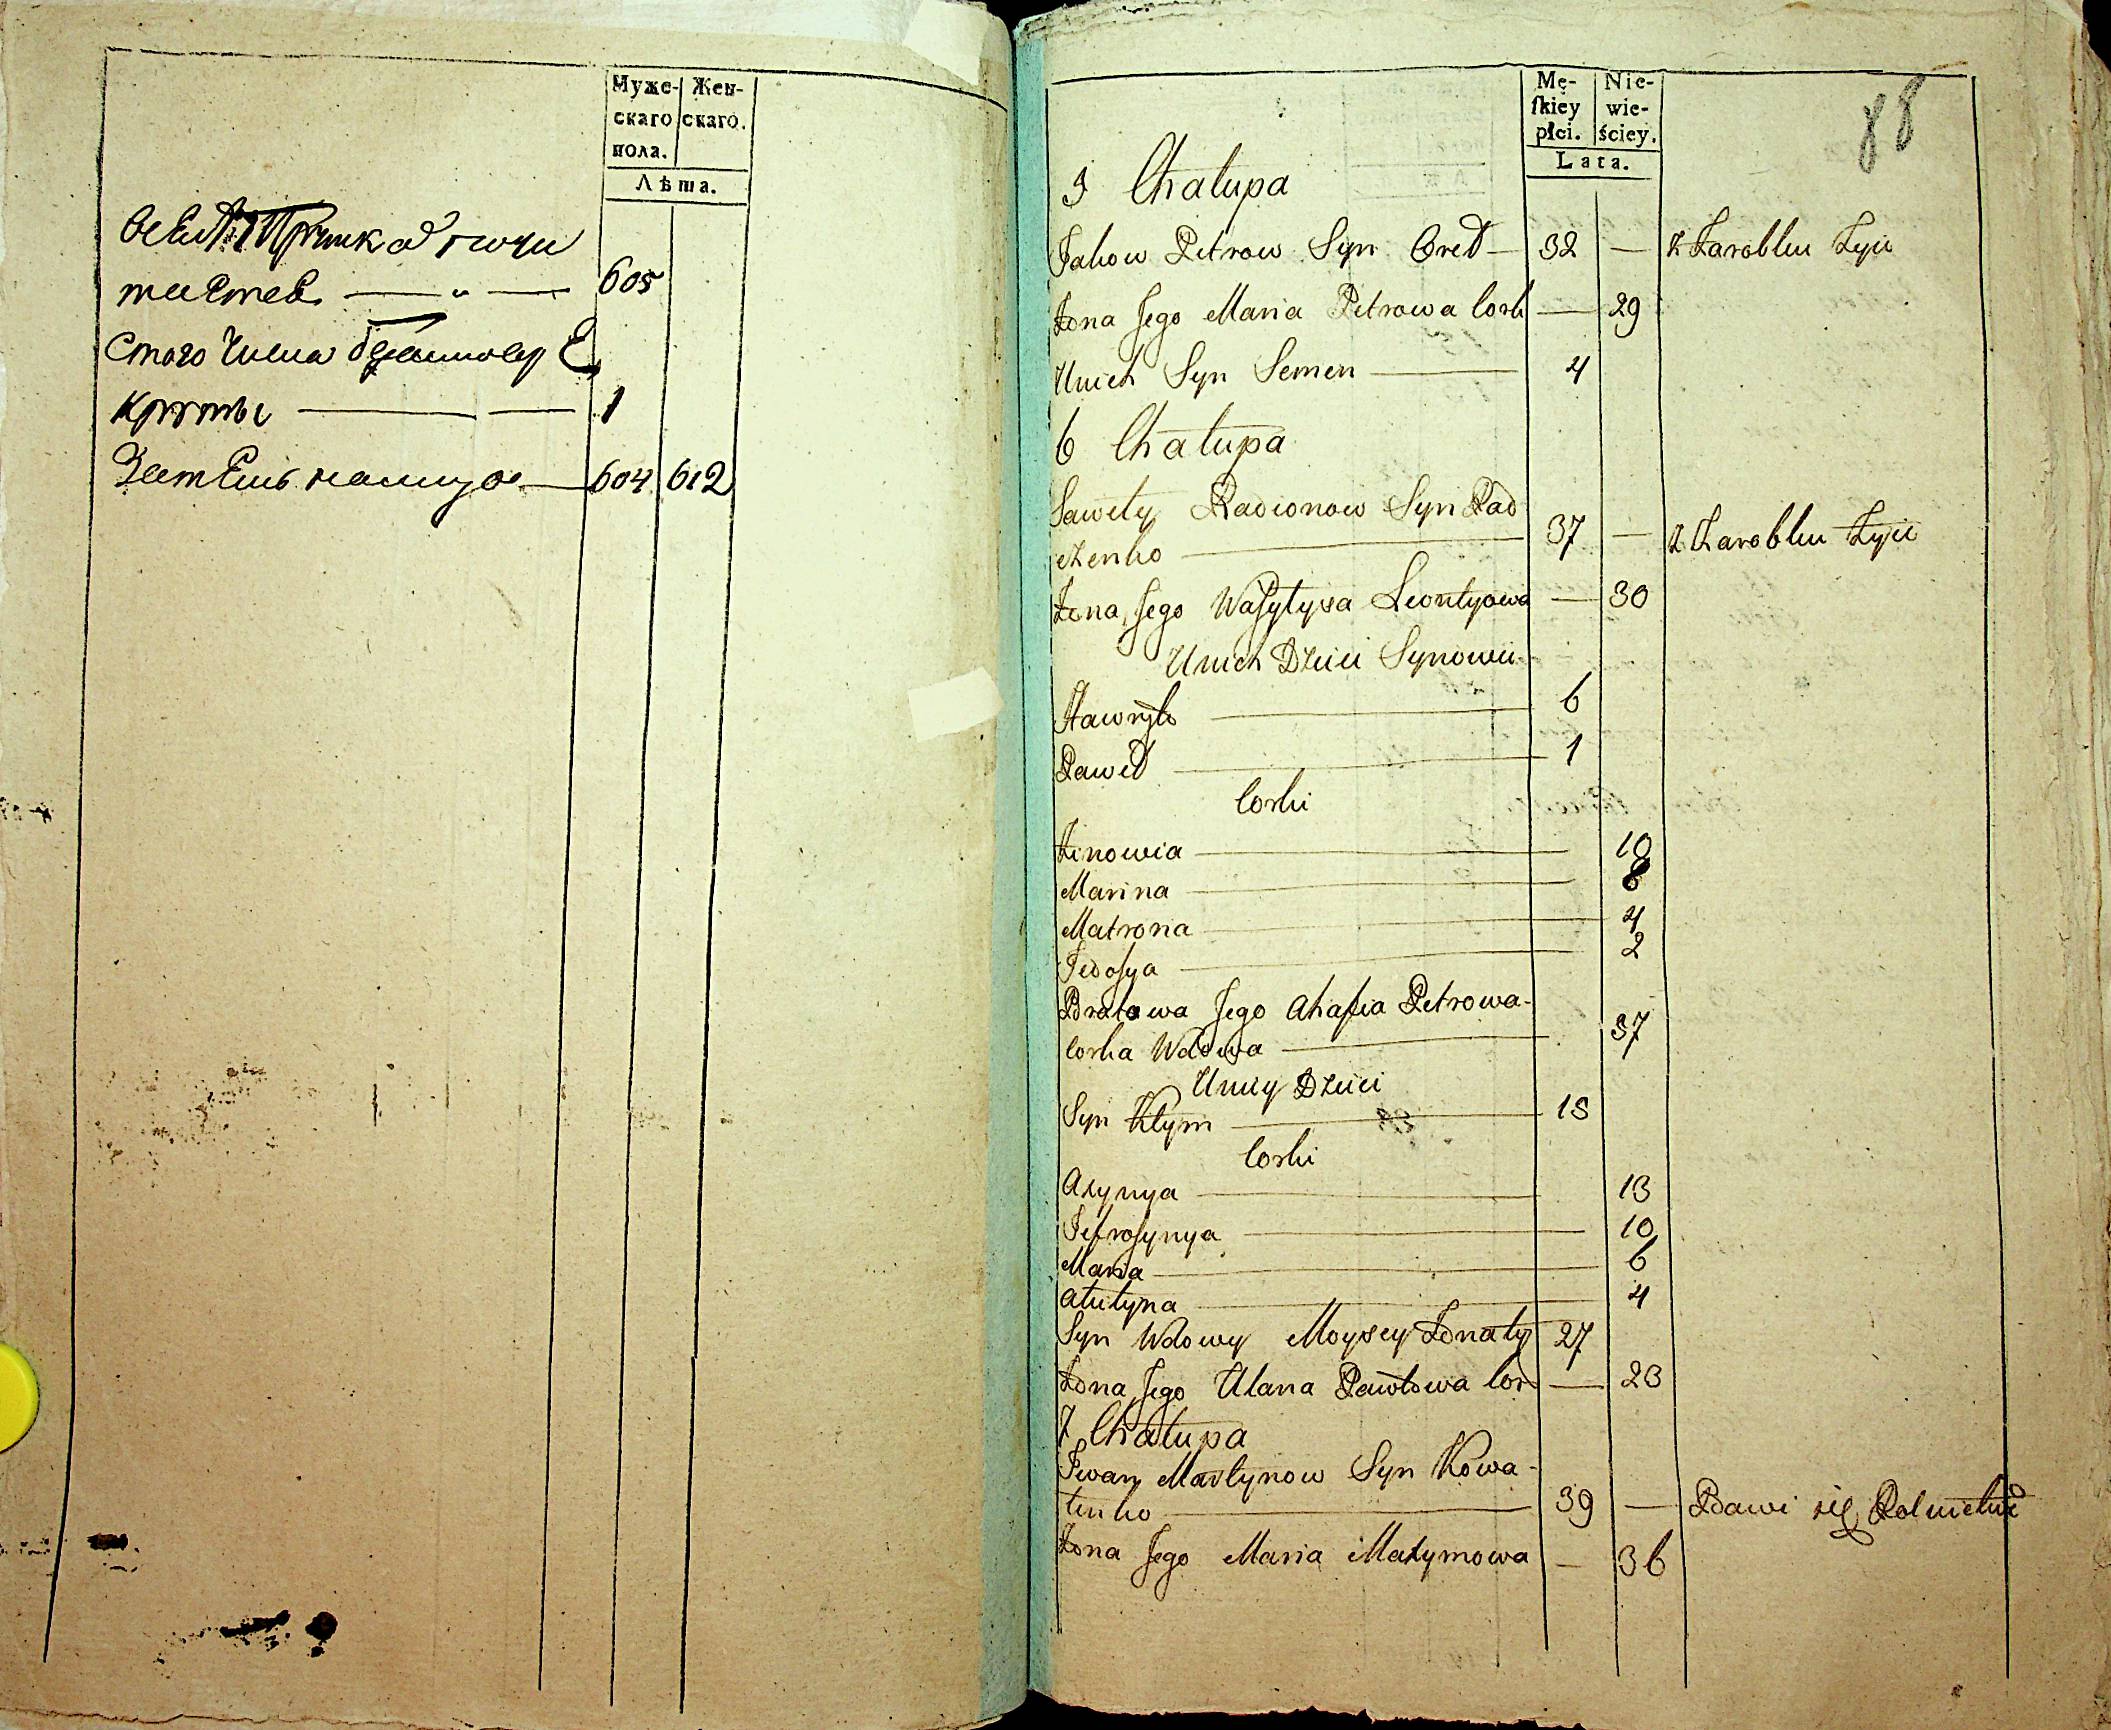 Муже-
скаго
пола.
Жен-
скаго.
Лѣта.
605
Стого Числа
1
604 612
Mę-
skiey
płci.
Nie-
wie-
ściey.
Lata.
88
5 Chałupa
Jakow Petrow Syn Oreł — 32 — Z Zarobku Żyie
Żona Jego Maria Petrowa Cork — 29
Unich Syn Semen — 4
6 Chałupa
Sawely Radionow Syn Rad
czenko — 37 — Z Zarobku Żyie
Żona Jego Wasylysa Leontyowa — 30
Unich Dzieci Synowie
Hawryło — 6
Paweł — 1
Corki
Zenowia — 10
Marina — 8
Matrona — 4
Fedosya — 2
Bratowa Jego Ahafia Petrowa
Corka Wdowa — 37
Uniey Dzieci
Syn Kłym — 15
Corki
Axynya — 13
Jefrosynya — 10
Maria — 6
Akulyna — 4
Syn Wdowy Moysey Żonaty 27
Żona Jego Ulana Pawłowa Cor — 23
7 Chałupa
Iwan Martynow Syn Kowa-
lenko — 39 — Bawi się Rolnictwe
Żona Jego Maria Maxymowa — 36